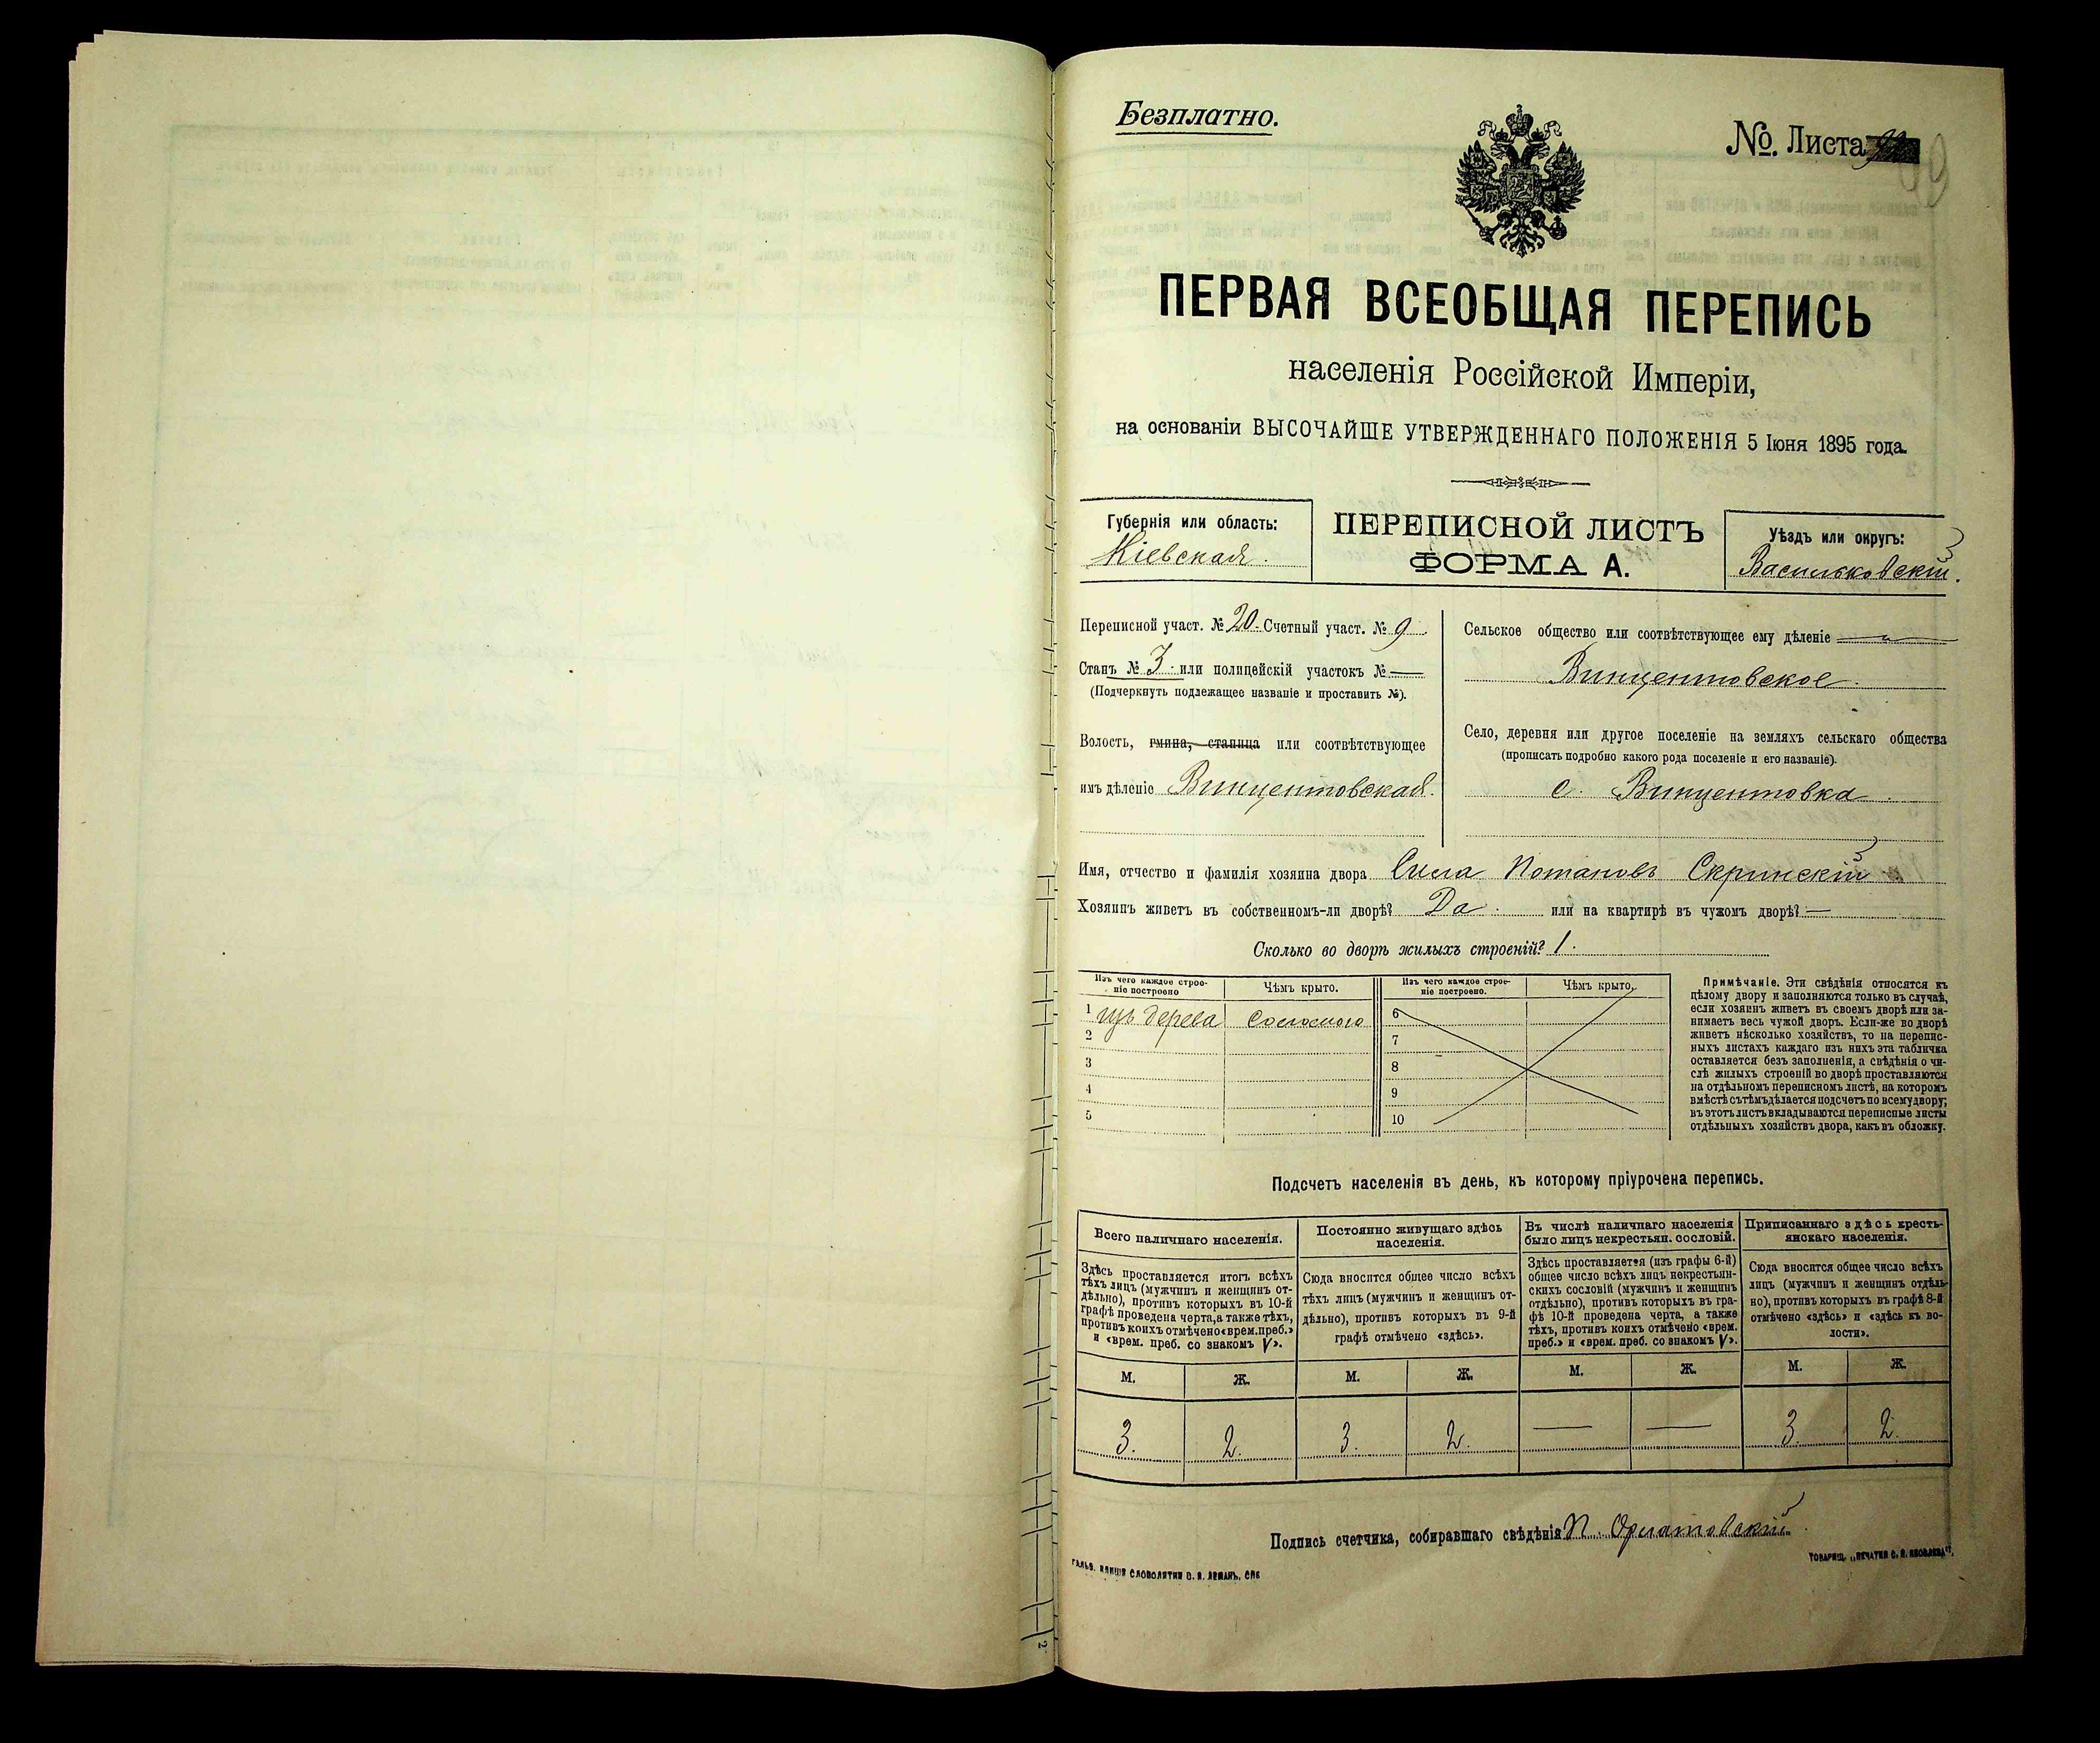 Безплатно.
№. Листа
ПЕРВАЯ ВСЕОБЩАЯ ПЕРЕПИСЬ
населенія Россійской Имперіи,
на основаніи ВЫСОЧАЙШЕ УТВЕРЖДЕННАГО ПОЛОЖЕНІЯ 5 Іюня 1895 года.
Губернія или область:
Кіевская.
ПЕРЕПИСНОЙ ЛИСТЪ
ФОРМА А.
Уѣздъ или округъ:
Васильковскій.
Переписной участ. № 20. Счетный участ. № 9.
Станъ № 3. или полицейскій участокъ № —
(Подчеркнуть подлежащее названіе и проставить №).
Волость, гмина, станица или соотвѣтствующее
имъ дѣленіе Винцентовская.
Сельское общество или соотвѣтствующее ему дѣленіе
Винцентовское.
Село, деревня или другое поселеніе на земляхъ сельскаго общества
(прописать подробно какого рода поселеніе и его названіе).
с. Винцентовка
Имя, отчество и фамилія хозяина двора Сила Потаповъ Скринскій
Хозяинъ живетъ въ собственномъ-ли дворѣ? Да. или на квартирѣ въ чужомъ дворѣ? —
Сколько во дворѣ жилыхъ строеній? 1.
Изъ чего каждое строе-
ніе построено
Чѣмъ крыто.
Изъ чего каждое строе-
ніе построено.
Чѣмъ крыто.
1 изъ дерева соломою
2
3
4
5
6
7
8
9
10
Примѣчаніе. Эти свѣдѣнія относятся къ
цѣлому двору и заполняются только въ случаѣ,
если хозяинъ живетъ въ своемъ дворѣ или за-
нимаетъ весь чужой дворъ. Если-же во дворѣ
живетъ нѣсколько хозяйствъ, то на перепис-
ныхъ листахъ каждаго изъ нихъ эта табличка
оставляется безъ заполненія, а свѣдѣнія о чи-
слѣ жилыхъ строеній во дворѣ проставляются
на отдѣльномъ переписномъ листѣ, на которомъ
вмѣстѣ съ тѣмъ дѣлается подсчетъ по всему двору;
въ этотъ листъ вкладываются переписные листы
отдѣльныхъ хозяйствъ двора, какъ въ обложку.
Подсчетъ населенія въ день, къ которому пріурочена перепись.
Всего наличнаго населенія.
Здѣсь проставляется итогъ всѣхъ
тѣхъ лицъ (мужчинъ и женщинъ от-
дѣльно), противъ которыхъ въ 10-й
графѣ проведена черта, а также тѣхъ,
противъ коихъ отмѣчено «врем. преб.»
и «врем. преб. со знакомъ V».
Постоянно живущаго здѣсь
населенія.
Сюда вносится общее число всѣхъ
тѣхъ лицъ (мужчинъ и женщинъ от-
дѣльно), противъ которыхъ въ 9-й
графѣ отмѣчено «здѣсь».
Въ числѣ наличнаго населенія
было лицъ некрестьян. сословій.
Здѣсь проставляется (изъ графы 6-й)
общее число всѣхъ лицъ некрестьян-
скихъ сословій (мужчинъ и женщинъ
отдѣльно), противъ которыхъ въ гра-
фѣ 10-й проведена черта, а также
тѣхъ, противъ коихъ отмѣчено «врем.
преб.» и «врем. преб. со знакомъ V».
Приписаннаго здѣсь кресть-
янскаго населенія.
Сюда вносится общее число всѣхъ
лицъ (мужчинъ и женщинъ отдѣль-
но), противъ которыхъ въ графѣ 8-й
отмѣчено «здѣсь» и «здѣсь къ во-
лости».
М. Ж. М. Ж. М. Ж. М. Ж.
3. 2. 3. 2. — — 3. 2.
Подпись счетчика, собиравшаго свѣдѣнія
ТОВАРИЩ. „ПЕЧАТНЯ С. П. ЯКОВЛЕВА".